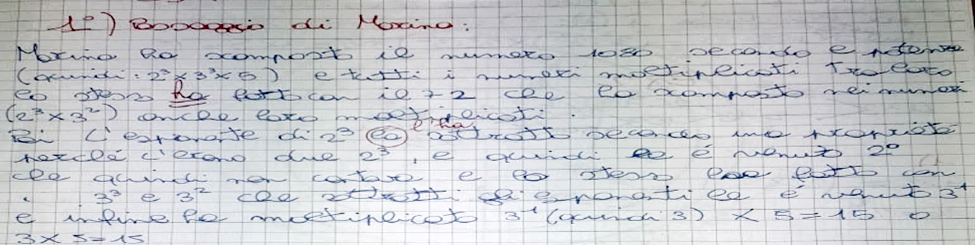 1°) Passaggio di Marina:
Marina ha scompost il numero 1080 secondo e potenze
(quindi: 2³ x 3³ x 5) e tutti i numeri moltiplicati tra loro
lo stess ha fatt con il 72 che lo scomposto nei numeri
(2³ x 3²) anche loro moltiplicati.
L'esponente di 2³ lo l'ha sottratt secondo una proprietà
perché c'erano due 2³, e quindi è venut 2°
che quindi non contava e lo stess fatt con
3³ e 3² che gli esponenti è venut 3¹
e infine ha moltiplicato 3¹ (quindi 3) x 5 = 15 o
3 x 5 = 15